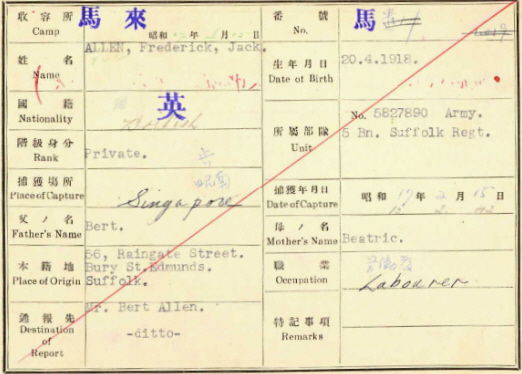 收容所
Camp
馬來
昭和 年 月 日
番號
No.
馬
姓名
Name
ALLEN, Frederick, Jack.
生年月日
Date of Birth
20.4.1918.
國籍
Nationality
英
British
所屬部隊
Unit
No. 5827890 Army.
5 Bn. Suffolk Regt.
階級身分
Rank
Private.
捕獲場所
Place of Capture
Singapore
捕獲年月日
Date of Capture
昭和 17年 2月 15日
15 2 42
父ノ名
Father's Name
Bert.
母ノ名
Mother's Name
Beatric.
本籍地
Place of Origin
56, Raingate Street.
Bury St.Edmunds.
Suffolk.
職業
Occupation
Labourer
通報先
Destination of Report
Mr. Bert Allen.
-ditto-
特記事項
Remarks